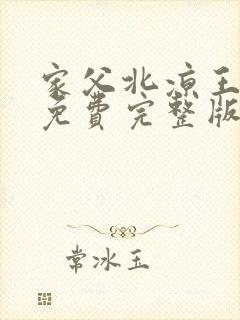 家父北凉王
免费完整版
常冰玉